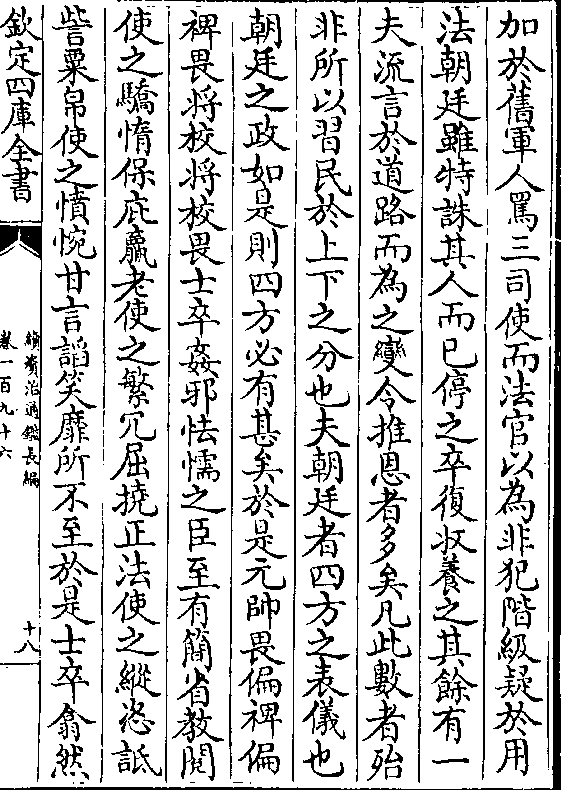 加於舊軍人罵三司使而法官以為非犯階級疑於用
法朝廷雖特誅其人而已停之卒復收養之其餘有一
夫流言於道路而為之變令推恩者多矣凡此數者殆
非所以習民於上下之分也夫朝廷者四方之表儀也
朝廷之政如是則四方必有甚矣於是元帥畏偏裨偏
裨畏將校將校畏士卒姦邪怯懦之臣至有簡省教閱
使之驕惰保庇羸老使之繁冗屈撓正法使之縱恣詆
訾粟帛使之憤惋甘言諂笑靡所不至於是士卒翕然
欽定四庫全書
續資治通鑑長編
卷一百九十六
十八